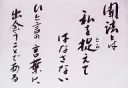 聞法とは
私を捉えて
はなさない
ひと言の言葉に、
出会うことである